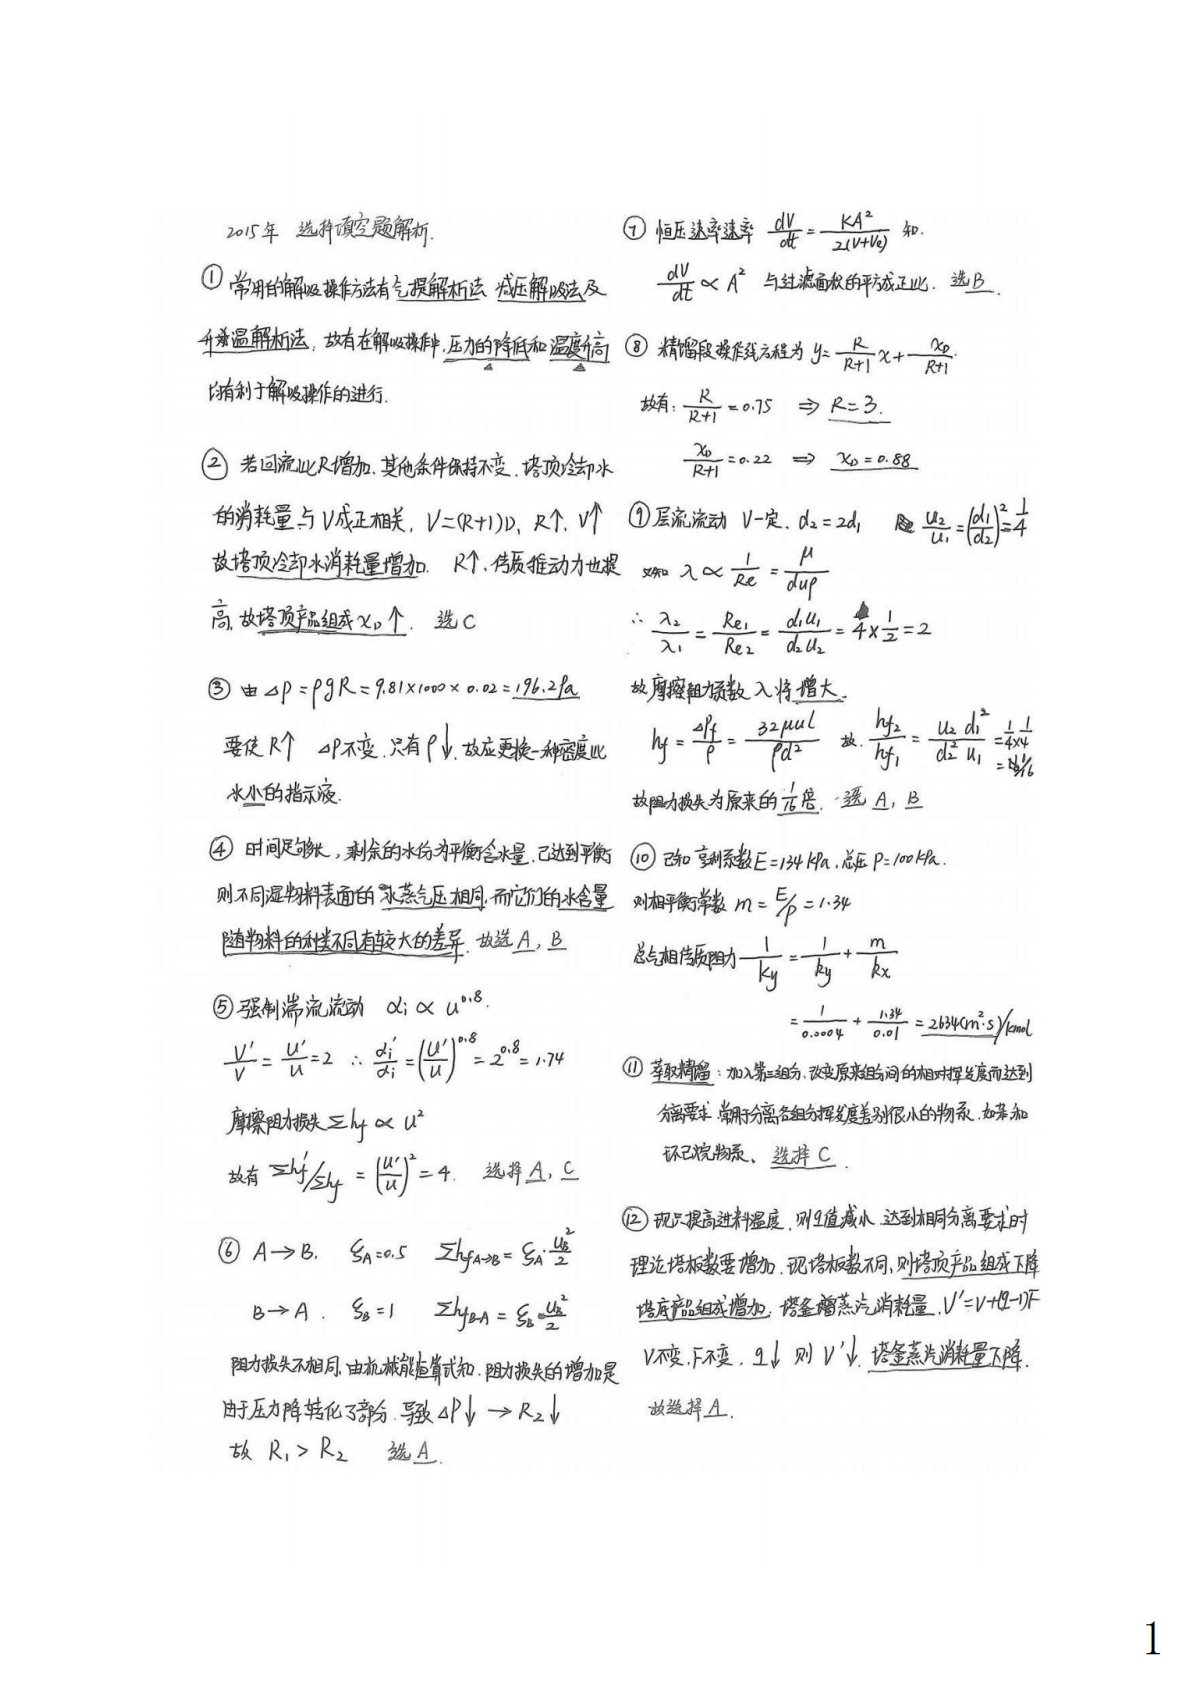 2015年 选择填空题解析.
① 常用的解吸操作方法有气提解析法 减压解吸法及
升温解析法. 故有在解吸操作中, 压力的降低和温度升高
均有利于解吸操作的进行.
② 若回流比R增加, 其他条件保持不变. 塔顶冷却水
的消耗量与V成正相关, V=(R+1)D, R↑, V↑
故塔顶冷却水消耗量增加. R↑, 传质推动力也提
高, 故塔顶产品组成 x_D↑. 选C
③ 由 ΔP=ρgR=9.81×1000×0.02=196.2Pa
要使R↑ ΔP不变. 只有ρ↓. 故应更换一种密度比
水小的指示液.
④ 时间足够长, 剩余的水份为平衡含水量, 已达到平衡
则不同湿物料表面的水蒸气压相同, 而它们的水含量
随物料的种类不同有较大的差异. 故选A, B
⑤ 强制湍流流动 αi ∝ u^0.8.
V'/V = u'/u = 2 ∴ αi'/αi = (u'/u)^0.8 = 2^0.8 = 1.74
摩擦阻力损失 Σhf ∝ u²
故有 Σhf'/Σhf = (u'/u)² = 4. 选择 A, C
⑥ A→B. ξA=0.5 Σhf A→B = ξA·uB²/2
B→A. ξB=1 Σhf B-A = ξB·uB²/2
阻力损失不相同, 由机械能恒算式知. 阻力损失的增加是
由于压力降转化了部分. 导致 ΔP↓ → R₂↓
故 R₁ > R₂ 选A.
⑦ 恒压速率速率 dV/dt = KA²/2(V+Ve) 知.
dV/dt ∝ A² 与过滤面积的平方成正比. 选B.
⑧ 精馏段操作线方程为 y = R/(R+1) x + x_D/(R+1).
故有: R/(R+1) = 0.75 ⇒ R=3.
x_D/(R+1) = 0.22 ⇒ x_D = 0.88
⑨ 层流流动 V一定. d₂=2d₁ u₂/u₁ = (d₁/d₂)² = 1/4
又知 λ ∝ 1/Re = μ/duρ
∴ λ₂/λ₁ = Re₁/Re₂ = d₁u₁/d₂u₂ = 4×1/2 = 2
故摩擦阻力系数 λ 将增大.
hf = ΔPf/ρ = 32μul/ρd² 故. hf₂/hf₁ = u₂d₁²/d₂²u₁ = 1/4×1/4
= 1/16
故阻力损失为原来的1/16倍. 选 A, B
⑩ 已知亨利系数E=134kPa, 总压P=100kPa.
则相平衡常数 m = E/P = 1.34
总气相传质阻力 1/Ky = 1/ky + m/kx
= 1/0.0004 + 1.34/0.01 = 2634(m²·s)/kmol
⑪ 萃取精馏: 加入第三组分, 改变原来组分间的相对挥发度而达到
分离要求. 常用于分离各组分挥发度差别很小的物系. 如苯和
环己烷物系. 选择C.
⑫ 现只提高进料温度, 则q值减小. 达到相同分离要求时
理论塔板数要增加. 现塔板数不同, 则塔顶产品组成下降
塔底产品组成增加. 塔釜蒸汽消耗量, V'=V+(q-1)F
V不变, F不变, q↓ 则 V'↓, 塔釜蒸汽消耗量下降.
故选择A.
1